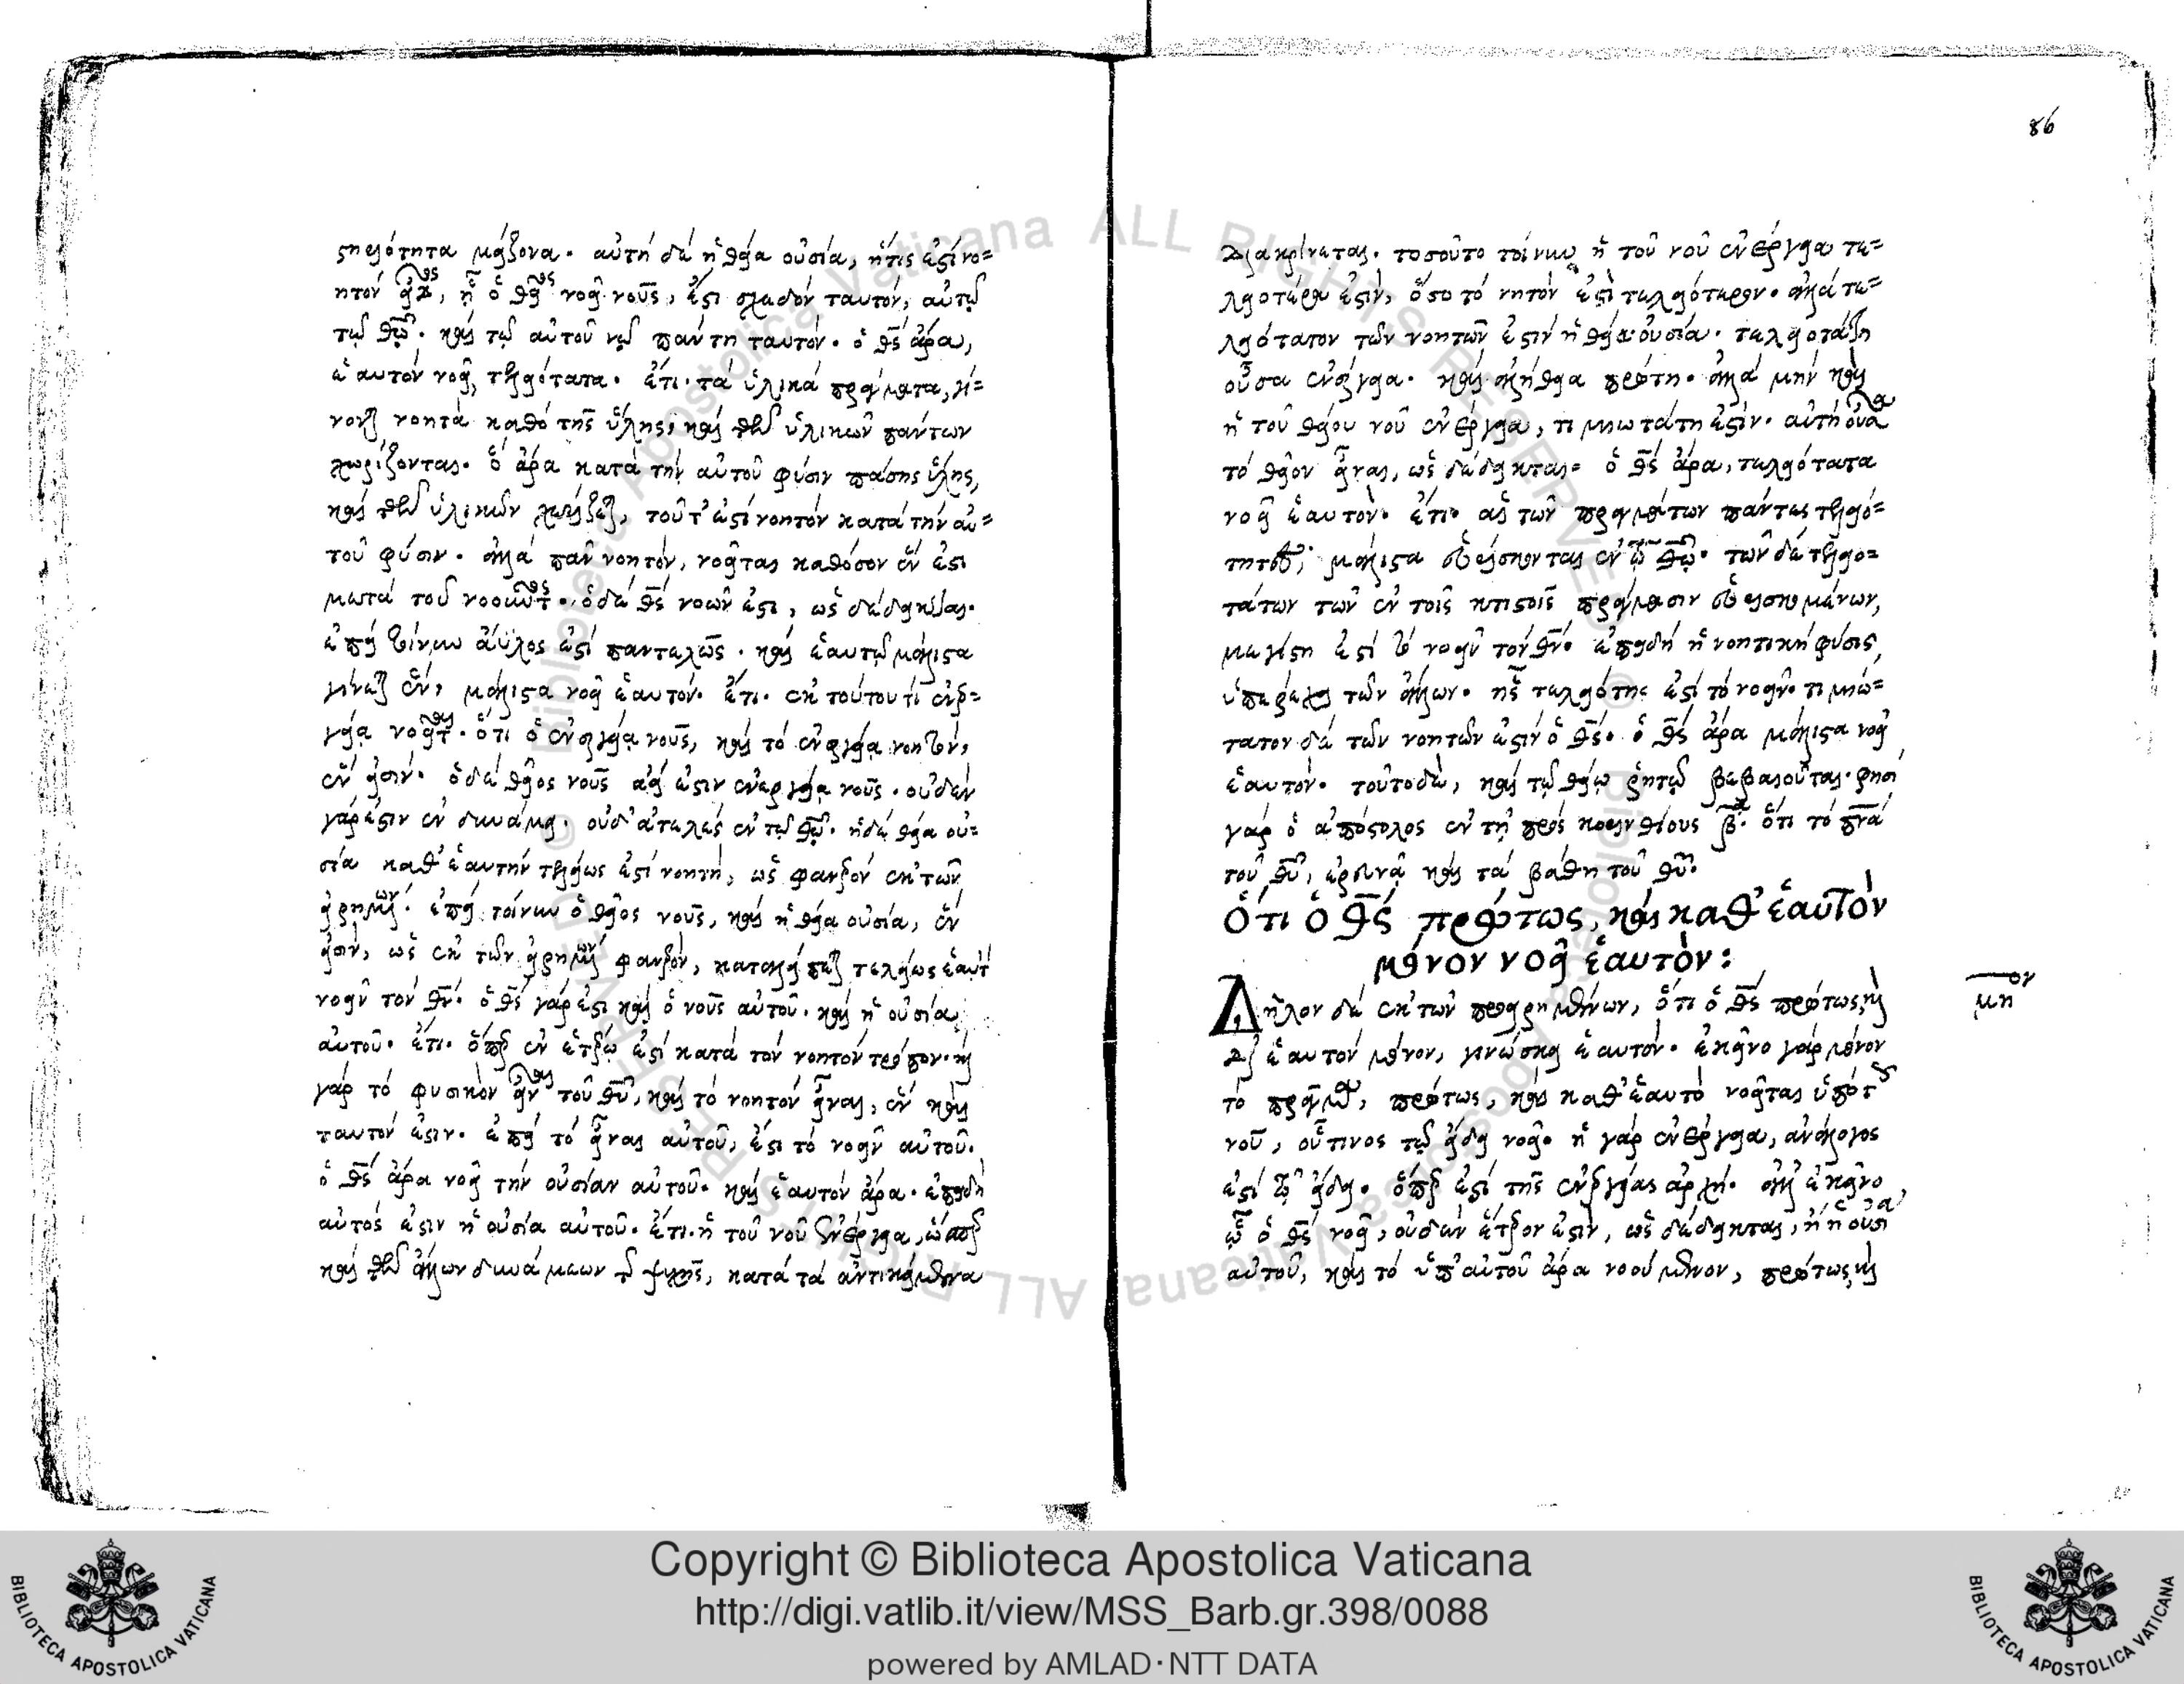 στηριότητα μείζονα. αὐτὴ δὲ ἡ θεία οὐσία, ἥτις ἐστὶ νο=
ητὸν εἶδος, ᾗ ὁ θεῖος νοεῖ νοῦς, ἔστι σχεδὸν ταυτὸν, αὐτῷ
τῷ θῷ. καὶ τῷ αὐτοῦ νῷ πάντη ταυτόν. ὁ θς ἄρα,
ἑαυτὸν νοεῖ τελειότατα. ἔτι. τὰ ὑλικὰ πράγματα, γί=
νονται νοητὰ καθὸ τῆς ὕλης, καὶ τῶν ὑλικῶν πάντων
χωρίζονται. ὃ ἄρα κατὰ τὴν αὐτοῦ φύσιν πάσης ὕλης,
καὶ τῶν ὑλικῶν χωρίζεται, τοῦτ' ἐστὶ νοητὸν κατὰ τὴν αὐ=
τοῦ φύσιν. ἀλλὰ πᾶν νοητὸν, νοεῖται καθόσον ἕν ἐστι
μετὰ τοῦ νοοῦντος. ὁ δὲ θς νοῶν ἐστι, ὡς δέδεικται.
ἐπεὶ τοίνυν ἄϋλος ἐστὶ παντελῶς. καὶ ἑαυτῷ μάλιστα
γίνεται ἓν, μάλιστα νοεῖ ἑαυτόν. ἔτι. ἐκ τούτου τί ἐνερ=
γείᾳ νοεῖται. ὅτι ὁ ἐνεργείᾳ νοῦς, καὶ τὸ ἐνεργείᾳ νοητὸν,
ἕν εἰσιν. ὁ δὲ θεῖος νοῦς ἀεί ἐστιν ἐνεργείᾳ νοῦς. οὐδὲν
γάρ ἐστιν ἐν δυνάμει. οὐδ' ἀτελὲς ἐν τῷ θῷ. ἡ δὲ θεία οὐ=
σία καθ' ἑαυτὴν τελείως ἐστὶ νοητὴ, ὡς φανερὸν ἐκ τῶν
εἰρημένων. ἐπεὶ τοίνυν ὁ θεῖος νοῦς, καὶ ἡ θεία οὐσία, ἕν
εἰσιν, ὡς ἐκ τῶν εἰρημένων φανερὸν, καταλείπεται τελείως ἑαυτὸν
νοεῖν τὸν θν. ὁ θς γάρ ἐστι καὶ ὁ νοῦς αὐτοῦ. καὶ ἡ οὐσία
αὐτοῦ. ἔτι. ὅπερ ἐν ἑτέρῳ ἐστὶ κατὰ τὸν νοητὸν τρόπον. καὶ
γὰρ τὸ φυσικὸν εἶναι τοῦ θῦ, καὶ τὸ νοητὸν εἶναι, ἓν καὶ
ταυτόν ἐστιν. ἐπεὶ τὸ εἶναι αὐτοῦ, ἔστι τὸ νοεῖν αὐτοῦ.
ὁ θς ἄρα νοεῖ τὴν οὐσίαν αὐτοῦ. καὶ ἑαυτὸν ἄρα. ἐπειδὴ
αὐτός ἐστιν ἡ οὐσία αὐτοῦ. ἔτι. ἡ τοῦ νοῦ ἐνέργεια, ὥσπερ
καὶ τῶν ἄλλων δυνάμεων τῆς ψυχῆς, κατὰ τὰ ἀντικείμενα
86
διακρίνεται. τοσοῦτο τοίνυν ἡ τοῦ νοῦ ἐνέργεια τε=
λειοτέρα ἐστὶν, ὅσο τὸ νοητὸν ἐστὶ τελειότερον. ἀλλὰ τε=
λειότατον τῶν νοητῶν ἐστὶν ἡ θεία οὐσία. τελειοτάτη
οὖσα ἐνέργεια. καὶ ἀλήθεια πρώτη. ἀλλὰ μὴν καὶ
ἡ τοῦ θείου νοῦ ἐνέργεια, τιμιωτάτη ἐστίν. αὐτὴ οὖσα
τὸ θεῖον εἶναι, ὡς δέδεικται. ὁ θς ἄρα, τελειότατα
νοεῖ ἑαυτόν. ἔτι. αἱ τῶν πραγμάτων πάντες τελειό=
τητες, μάλιστα εὑρίσκονται ἐν τῷ θῷ. τῶν δὲ τελειο=
τάτων τῶν ἐν τοῖς κτιστοῖς πράγμασιν εὑρισκομένων,
μεγίστη ἐστὶ τὸ νοεῖν τὸν θν. ἐπειδὴ ἡ νοητικὴ φύσις,
ὑπερέχει τῶν ἄλλων. ἧς τελειότης ἐστὶ τὸ νοεῖν. τιμιώ=
τατον δὲ τῶν νοητῶν ἐστὶν ὁ θς. ὁ θς ἄρα μάλιστα νοεῖ
ἑαυτόν. τοῦτο δὲ, καὶ τῷ θείῳ ῥητῷ βεβαιοῦται. φησὶ
γὰρ ὁ ἀπόστολος ἐν τῇ πρὸς κορινθίους β. ὅτι τὸ πνα
τοῦ θῦ, ἐρευνᾷ καὶ τὰ βάθη τοῦ θῦ.
Ὅτι ὁ θς πρώτως, καὶ καθ' ἑαυτὸν
μόνον νοεῖ ἑαυτόν:
Δῆλον δὲ ἐκ τῶν προειρημένων, ὅτι ὁ θς πρώτως, καὶ
δι' ἑαυτὸν μόνον, γινώσκει ἑαυτόν. ἐκεῖνο γὰρ μόνον
τὸ πρᾶγμα, πρώτως, καὶ καθ' ἑαυτὸ νοεῖται ὑπὸ τοῦ
νοῦ, οὗτινος τῷ εἴδει νοεῖ. ἡ γὰρ ἐνέργεια, ἀνάλογος
ἐστὶ τῷ εἴδει. ὅπερ ἐστὶ τῆς ἐνεργείας ἀρχή. ἀλλ' ἐκεῖνο
ᾧ ὁ θς νοεῖ, οὐδὲν ἕτερόν ἐστιν, ὡς δέδεικται, ἢ ἡ οὐσία
αὐτοῦ, καὶ τὸ ὑπ' αὐτοῦ ἄρα νοούμενον, πρώτως, καὶ
μη ον
Copyright © Biblioteca Apostolica Vaticana
http://digi.vatlib.it/view/MSS_Barb.gr.398/0088
powered by AMLAD·NTT DATA
BIBLIOTECA APOSTOLICA VATICANA
BIBLIOTECA APOSTOLICA VATICANA